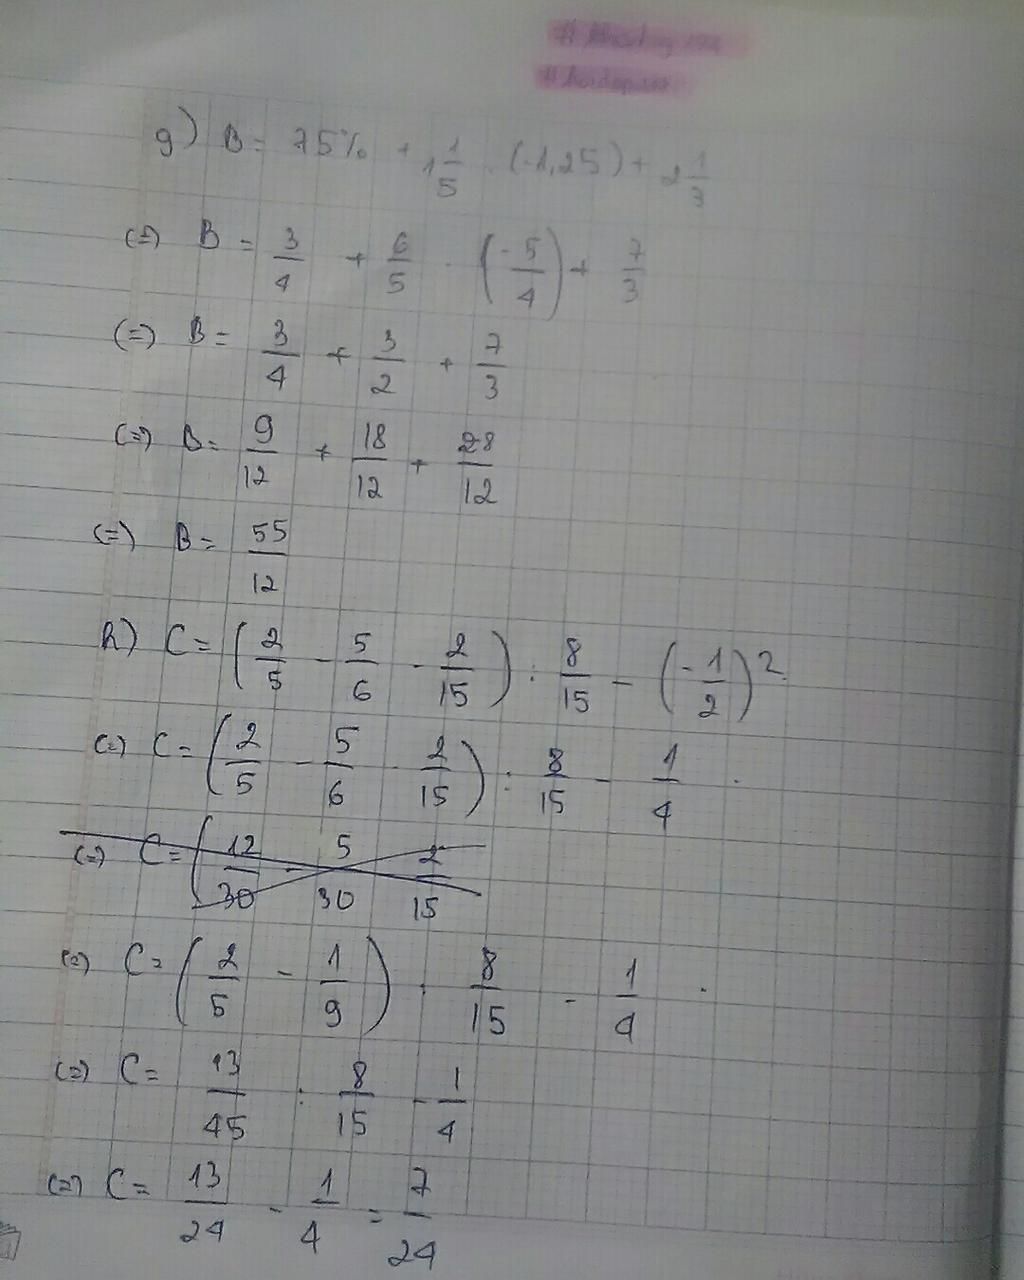 g) B = 75% + 1 1/5 . (-1,25) + 2 1/3
(=) B = 3/4 + 6/5 . (-5/4) + 7/3
(=) B = 3/4 + 3/2 + 7/3
(=) B = 9/12 + 18/12 + 28/12
(=) B = 55/12
h) C = (2/5 - 5/6 - 2/15) : 8/15 - (-1/2)2
(=) C = (2/5 - 5/6 - 2/15) : 8/15 - 1/4 .
(=) C = (12/30 - 5/30 2/15
(=) C = (2/5 - 1/9) . 8/15 - 1/4 .
(=) C = 13/45 : 8/15 - 1/4
(=) C = 13/24 - 1/4 = 7/24